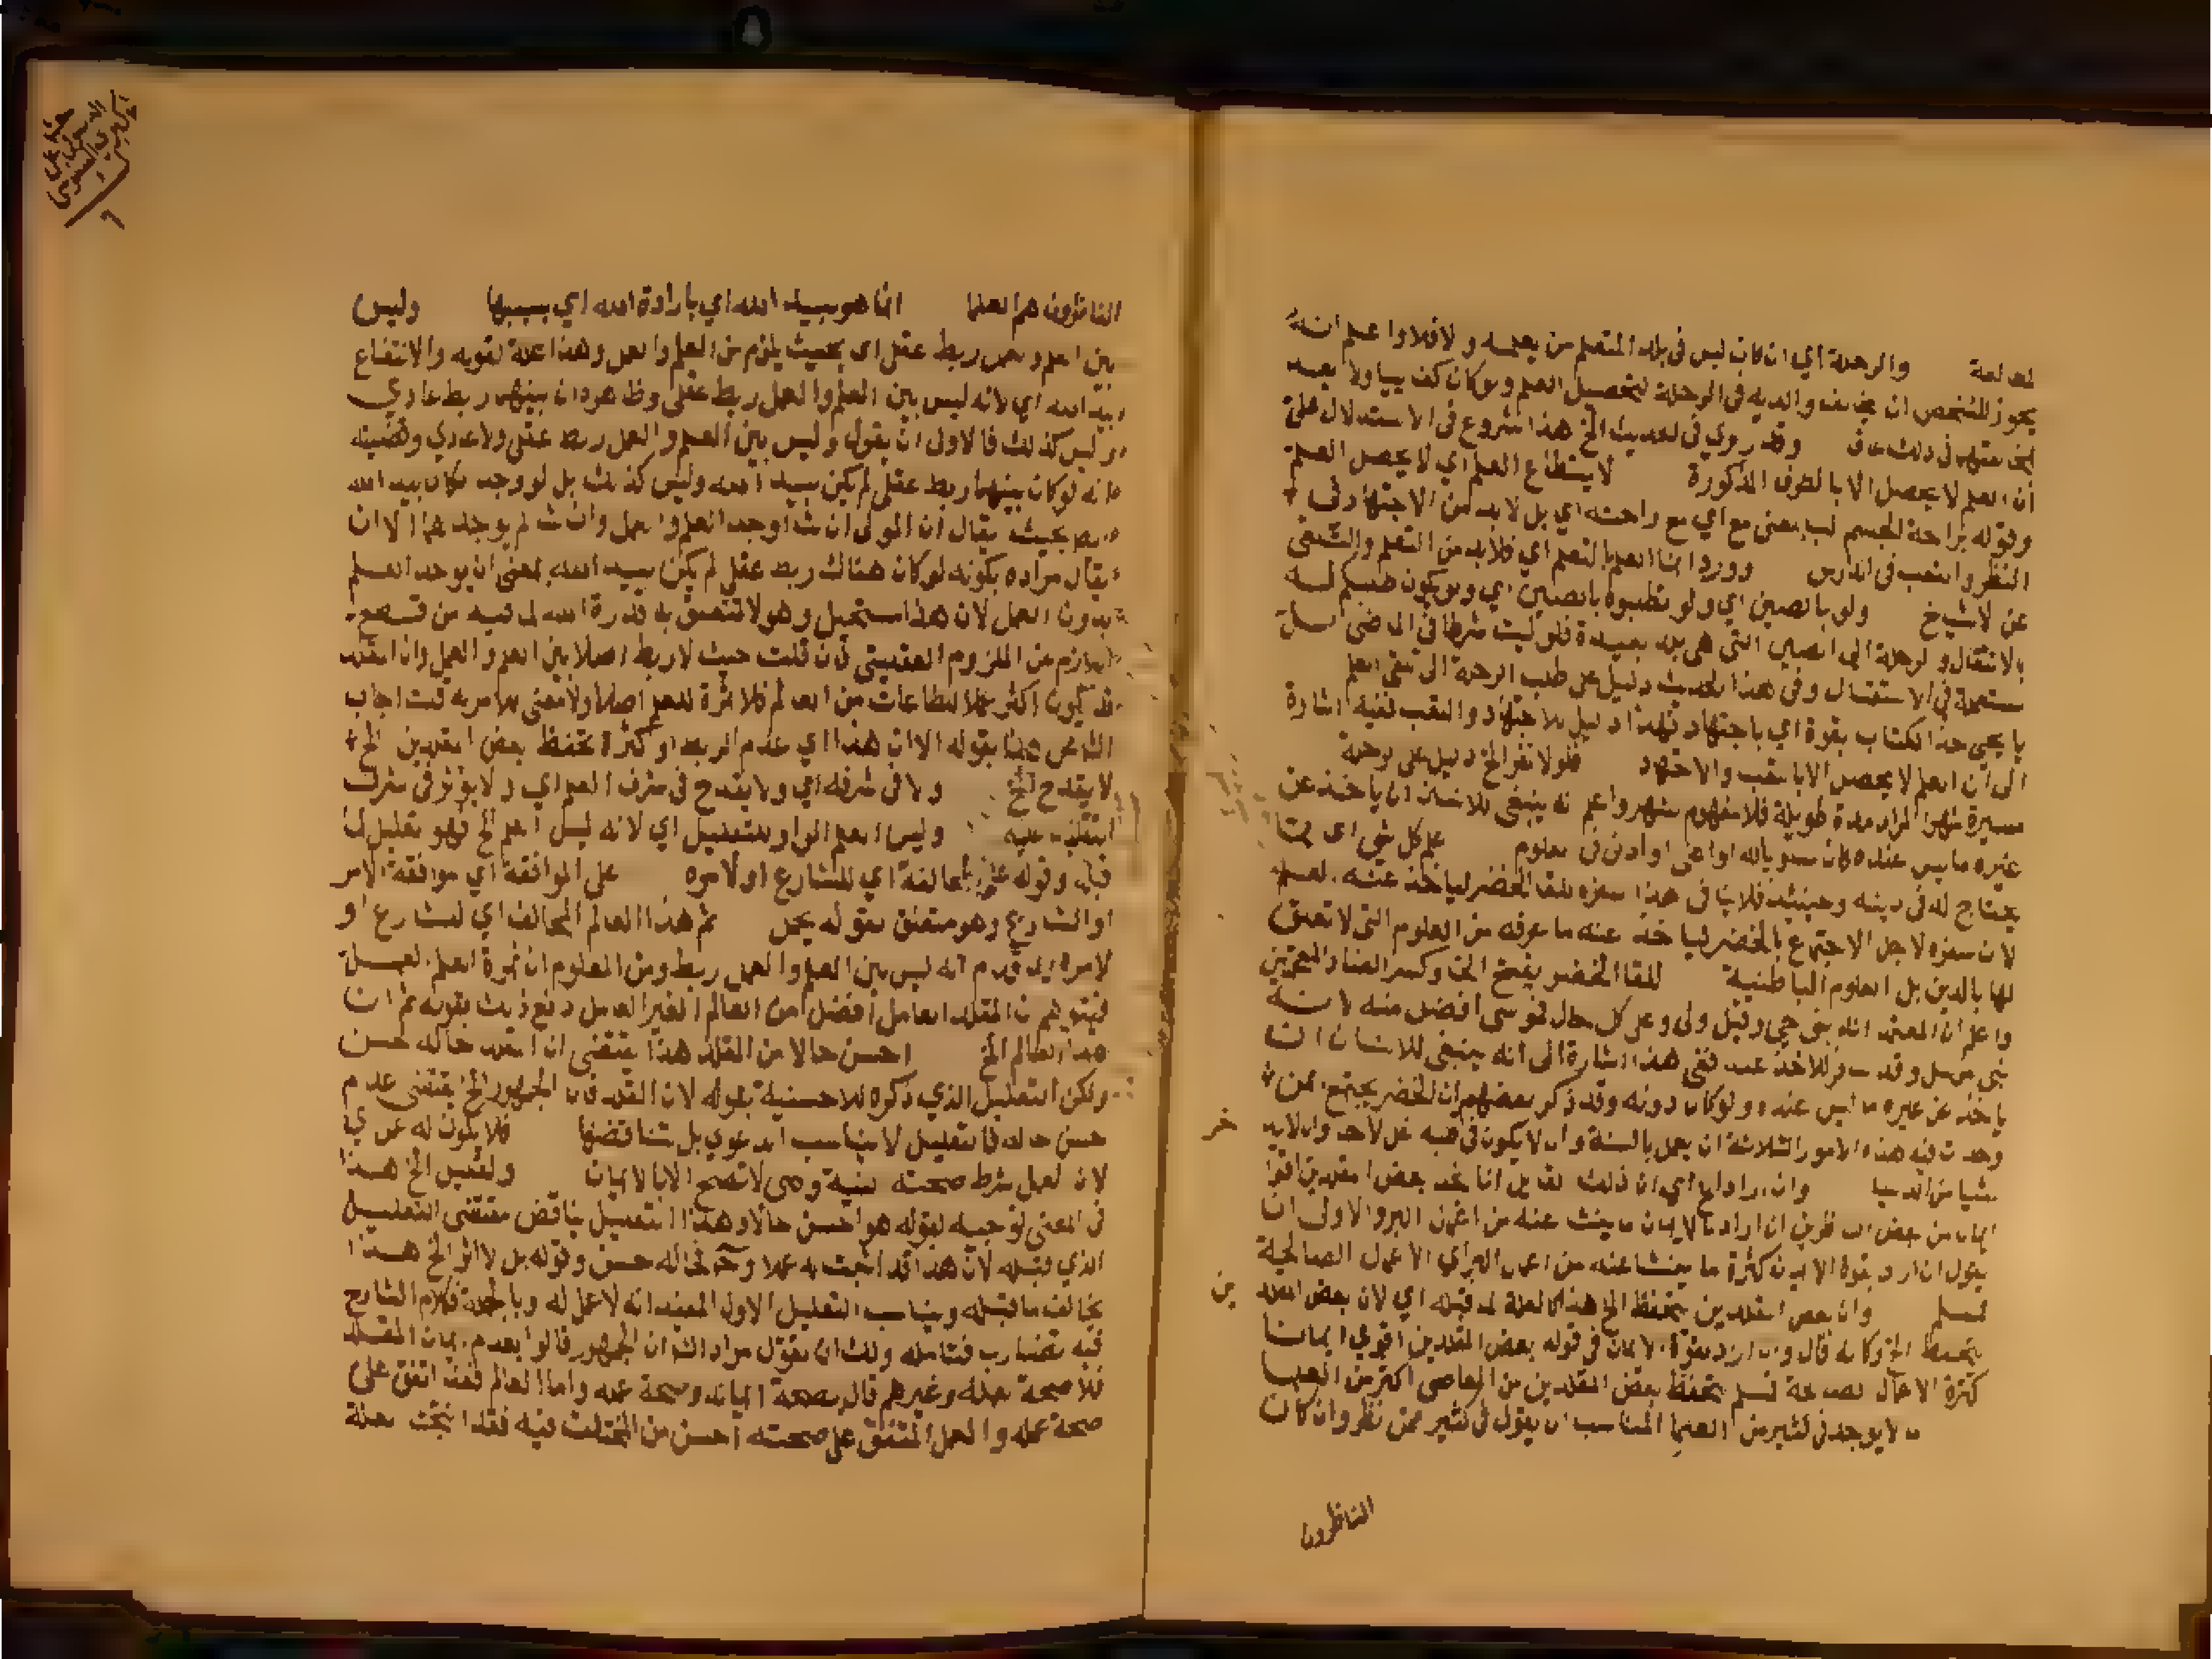 لمطالعة والرحلة أي ان كان ليس في بلد المتعلم من يعلمه ولا فلا واعلم انه
يجوز للشخص ان يخالف والديه في الرحلة لتحصيل العلم ولو كان كف بيا ولا يعد
مخالفتهم في ذلك عاق وقد روي في الحديث الخ هذا شروع في الاستدلال على
ان العلم لا يحصل الا بالطرف المذكورة لا يستطاع العلم اي لا يحصل العلم
وقوله براحة الجسم الباء بمعنى مع اي مع راحته اي بل لا بد من الاجتهاد في
النظر والتعب في الدارس وورد انما العلم بالتعلم اي فلا بد من التعلم والتلقي
عن الاشياخ ولو بالصين اي ولو تطلبوه بالصين اي ولو يكون طلبكم له
بالانتقال والرحلة الى الصين التي هي بلد بعيدة فلو ليست شرطا في الماضي بل
مستعملة في الاستقبال وفي هذا الحديث دليل على طلب الرحلة الى تلقي العلم
يا يحيى خذ الكتاب بقوة اي باجتهاد فهذا دليل للاجتهاد والتعب ففيه اشارة
الى ان العلم لا يحصل الا بالتعب والاجتهاد فلولا نفر الخ دليل على الرحلة
مسيرة شهر المراد مدة طويلة فلا مفهوم لشهر واعلم انه ينبغي للانسان ان ياخذ عن
غيره ما ليس عنده كان مسويا له او اعلى او ادنى في علوم علم كل شي اي مما
يحتاج له في دينه وحينئذ فلا ينافي هذا سفره للقا الخضر لياخذ عنه العلم
لان سفره لاجل الاجتماع بالخضر لياخذ عنه ما عرفه من العلوم التي لا تعلق
لها بالدين بل العلوم الباطنية للقا الخضر بفتح الخا وكسر الضاد المعجمتين
واعلم ان المعتمد انه نبي حي وقيل ولي وعلى كل حال فموسى افضل منه لانه
نبي مرسل وقد سافر للاخذ عنه ففي هذا اشارة الى انه ينبغي للانسان ان
ياخذ عن غيره ما ليس عنده ولو كان دونه وقد ذكر بعضهم ان الخضر يجتمع بمن
وجدت فيه هذه الامور الثلاثة ان يعمل بالسنة وان لا يكون في قلبه غل لاحد وان لا يدخر
شيا من الدنيا وان اراد الخ اي ان ذلك القايل انا نجد بعض المقلدين اقوا
ايمانا من بعض الناظرين ان اراد بالايمان ما ينشا عنه من اعمال البر والاولى ان
يقول ان اراد بقوة الايمان كثرة ما ينشا عنه من اعمال البر اي الاعمال الصالحة
فمسلم وان بعض المقلدين يتحفظ الخ هذا كالعلة لما قبله اي لان بعض المقلدين
يتحفظ الخ وكانه قال وان اراد بقوة الايمان في قوله بعض المقلدين اقوى ايمانا
كثرة الاعمال الصالحة فمسلم يتحفظ بعض المقلدين من المعاصي اكثر من العلما
ما لا يوجد في كثير من العلما المناسب ان يقول في كثير ممن نظر وان كان
الناظرون
الناظرون هم العلما انما هو بيد الله اي بارادة الله اي بسببها وليس
بين العلم والعمل ربط عقلي اي بحيث يلزم من العلم والعمل وهذا علة لقوله والانتفاع
بيد الله اي لانه ليس بين العلم والعمل ربط عقلي وظاهره ان بينهما ربط عادي
وليس كذلك فالاولى ان يقول وليس بين العلم والعمل ربط عقلي ولا عادي وقضيته
انه لو كان بينهما ربط عقلي لم يكن بيد الله وليس كذلك بل لو وجد لكان بيد الله
ربط بحيث يقال ان المولى ان شا اوجد العلم والعمل وان شا لم يوجدهما الا ان
يقال مراده بكونه لو كان هناك ربط عقلي لم يكن بيد الله بمعنى ان يوجد العلم
بدون العمل لان هذا مستحيل وهو لا تتعلق به قدرة الله لما فيه من قطع
اللازم من الملزوم العقليين فان قلت حيث لا ربط اصلا بين العلم والعمل وان المقلد
قد يكون اكثر عملا للطاعات من العالم فلا ثمرة للعلم اصلا ولا معنى للامر به قلت اجاب
الشا عن هذا بقوله الا ان هذا اي عدم الربط او كثرة تحفظ بعض المقلدين الخ
لا يقدح الخ ولا في شرفه اي ولا يقدح في شرف العلم اي ولا يؤثر في شرف
وليس العلم الواو للتعليل اي لانه ليس العلم الخ فهو تعليل لما
قبله وقوله على المخالفة اي للشارع او لامره على الموافقة اي موافقة الامر
او الشارع وهو متعلق بقوله يحمل ثم هذا العالم المخالف اي للشارع او
لامره لما قدم انه ليس بين العلم والعمل ربط ومن المعلوم ان ثمرة العلم العمل
فيتوهم ان المقلد العامل افضل من العالم الغير العامل دفع ذلك بقوله ثم ان
هذا العالم الخ احسن حالا من المقلد هذا يقتضي ان المقلد حاله حسن
ولكن التعليل الذي ذكره للاحسنية بقوله لان المقلد قال الجمهور الخ يقتضي عدم
حسن حاله فالتعليل لا يناسب الدعوي بل يتناقضها فلا يكون له عمل
لان العمل شرط صحته النية وهي لا تصح الا بالايمان وليس الخ هذا
في المعنى توجيه لقوله هو احسن حالا وهذا التعليل يناقض مقتضى التعليل
الذي قبله لان هذا قد اثبت له عملا وحـ فحاله حسن وقوله بل لا اثر الخ هذا
يخالف ما قبله ويناسب التعليل الاول المفيد انه لا عمل له وبالجملة فكلام الشارح
فيه تضارب فتامله ولك ان تقول مراد الشا ان الجمهور قالوا بعدم ايمان المقلد
فلا صحة لعمله وغيرهم قال بصحة ايمانه وصحة عمله واما العالم فقد اتفق على
صحة عمله والعمل المتفق على صحته احسن من المختلف فيه فقد انتجت العلة